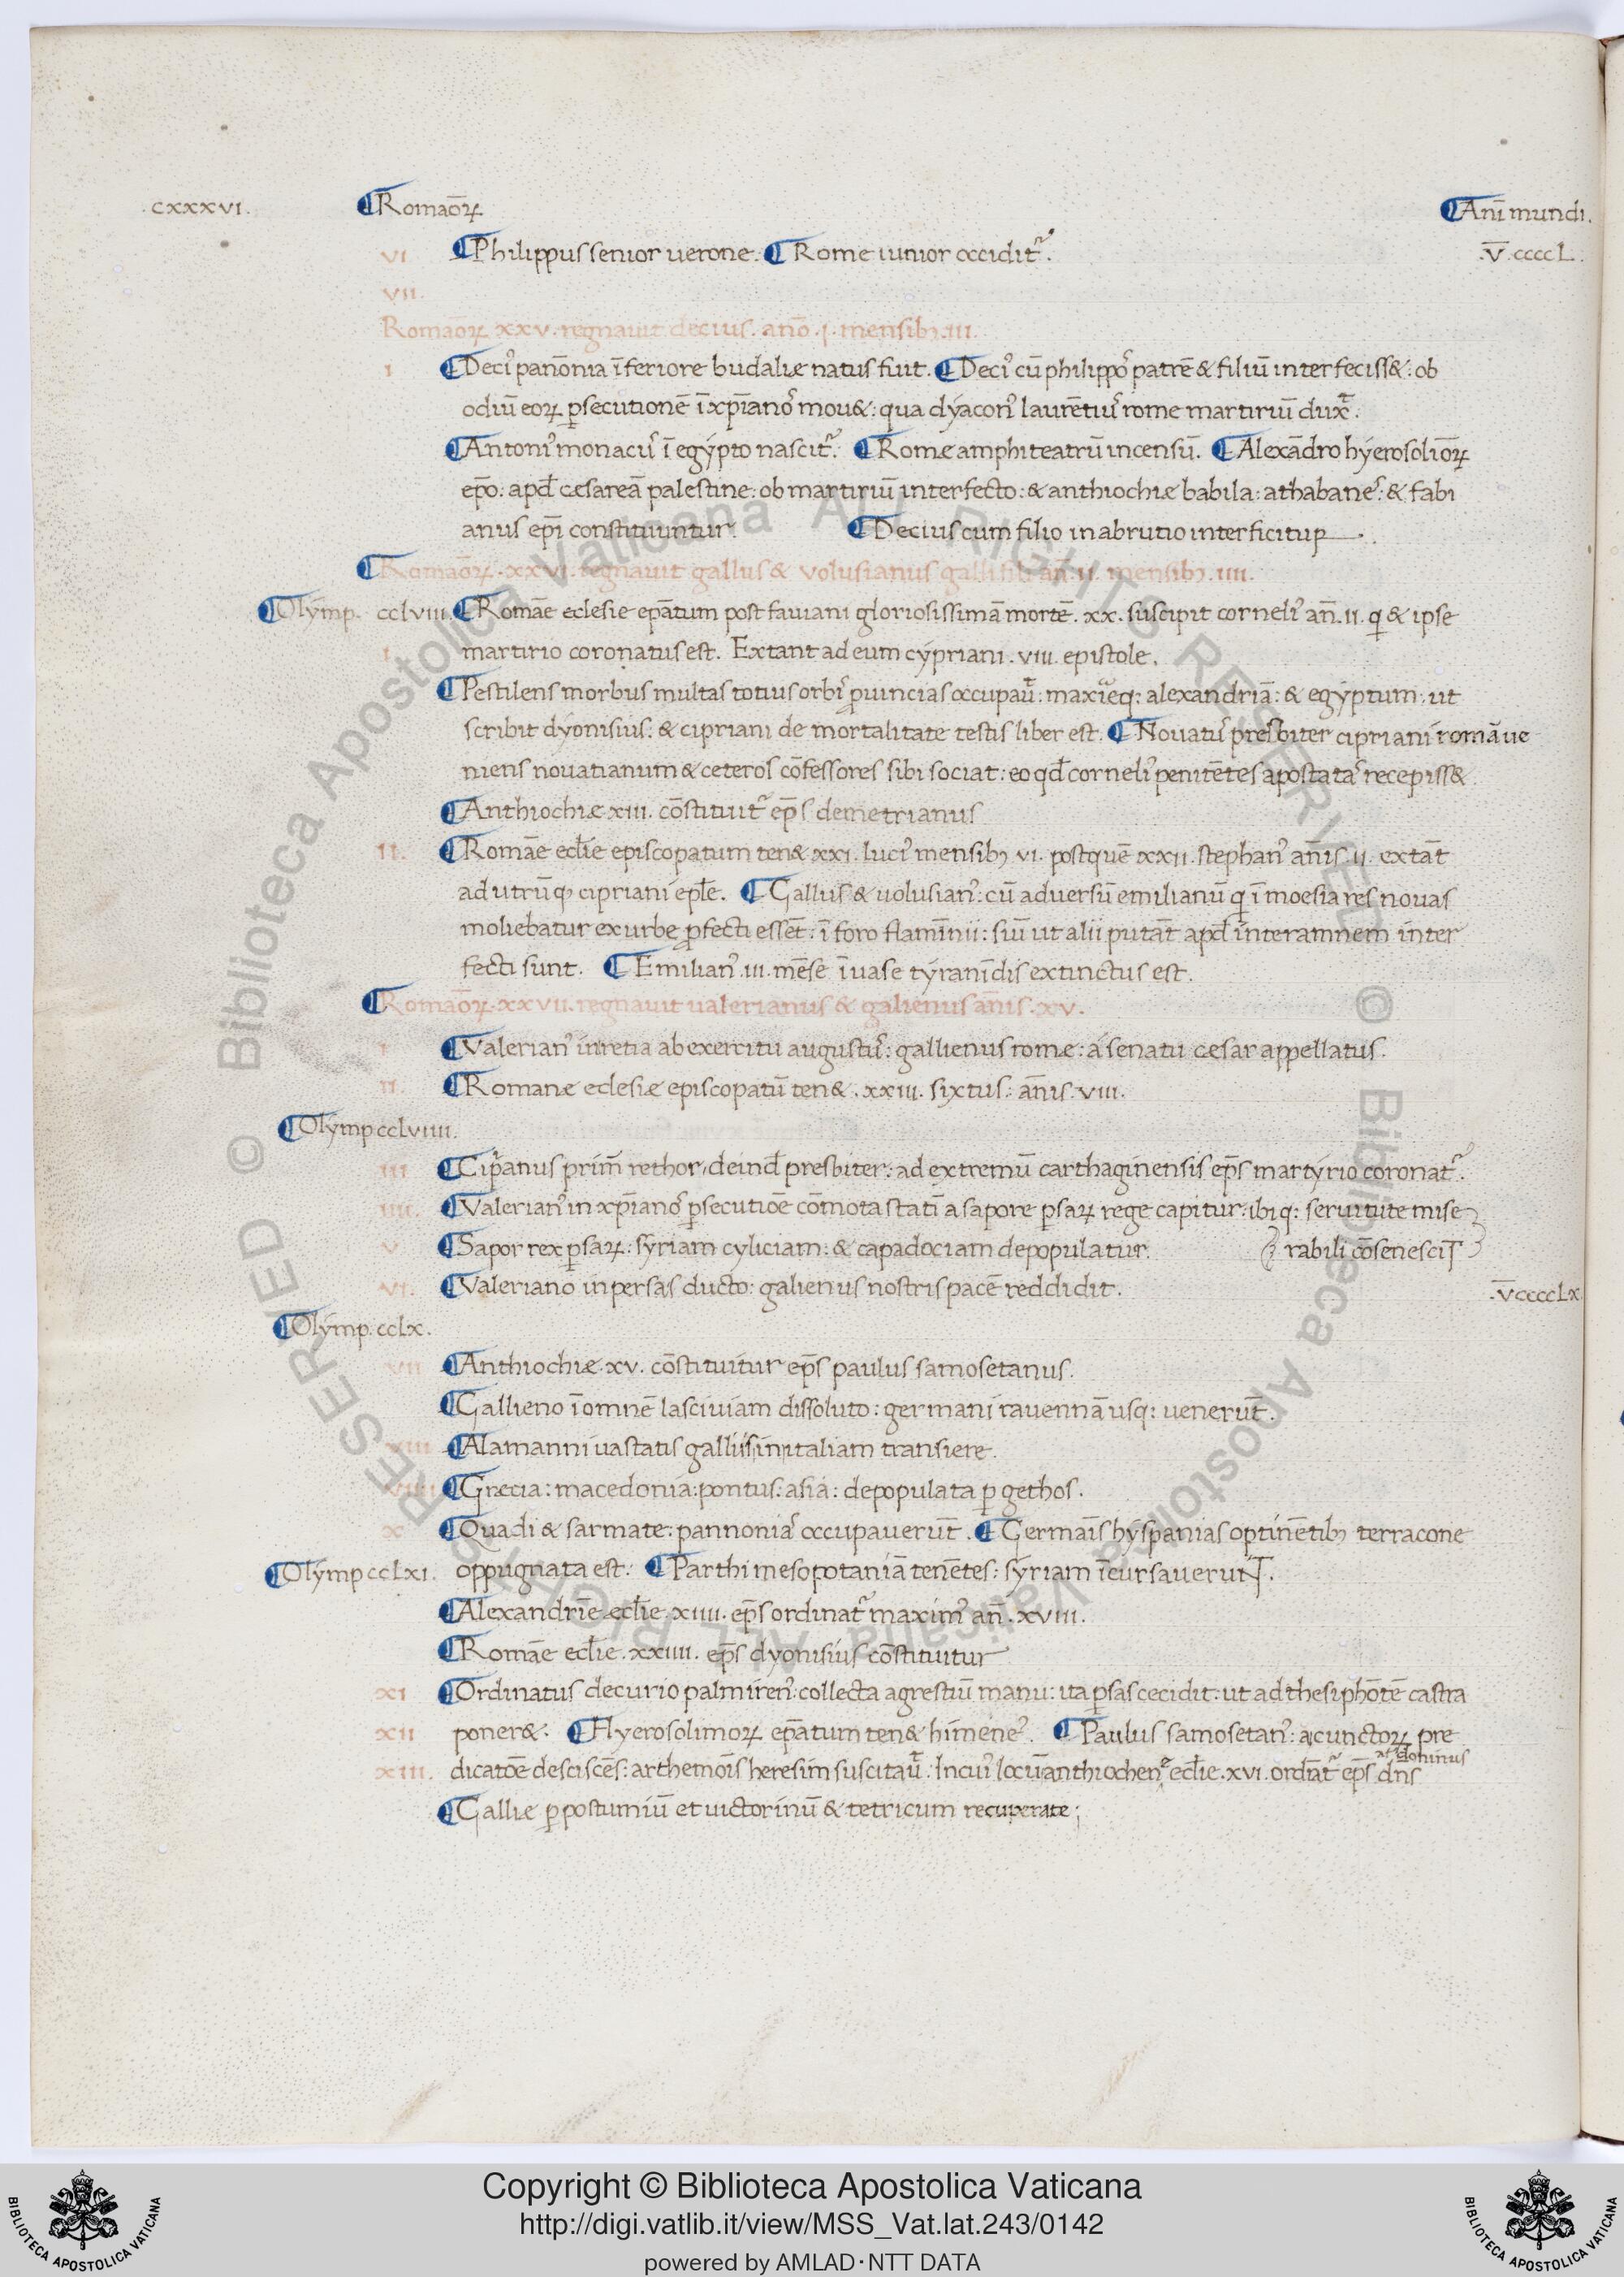 .CXXXVI. ¶Romaōꝝ ¶Anī mundi.
VI ¶Philippus senior uerone. ¶Rome iunior occidit᷑. .V̄.CCCCL.
VII.
Romaōꝝ XXV. regnauit decius. anō .I. mensibꝫ .III.
I ¶Deciꝰ panōnia īferiore budaliæ natus fuit. ¶Deciꝰ cū philippoꝰ patrē & filiū interfeciss&: ob
odiū eoꝝ ꝑsecutionē ī xp̄ianoꝰ mou&: qua dẏaconꝰ laurētiuꝰ rome martiriū dux̄t.
¶Antoniꝰ monacuꝰ ī egẏpto nascit᷑. ¶Romæ amphiteatrū incensū. ¶Alexādro hẏerosoliōꝝ
ep̄o: apđ cesareā palestine: ob martiriū interfecto: & anthiochiæ babila: athabaneꝰ: & fabi
anus ep̄i constituuntur. ¶Decius cum filio in abrutio interficitur.
¶Romaōꝝ. XXVI. regnauit gallus & volusianus galli fili an̄. II. mensibꝫ. IIII.
¶Olẏmp. CCLVIII. ¶Romāe eclesie epātum post fauiani gloriosissimā mortē. XX. suscipit corneliꝰ an̄. II. q & ipse
I martirio coronatus est. Extant ad eum cẏpriani. VIII. epistole.
¶Pestilens morbus multas totius orbiꝰ ꝓuincias occupau̅t: maximeq: alexandriā: & egẏptum: ut
scribit dẏonisius: & cipriani de mortalitate testis liber est. ¶Nouatꝰ presbiter cipriani romā ue
niens nouatianum & ceteros cōfessores sibi sociat: eo qđ corneliꝰ penitētes apostataꝰ recepiss&.
¶Anthiochiæ XIII. cōstituit᷑ ep̄s demetrianus
II. ¶Romāe eclīe episcopatum ten& XXI. luciꝰ mensibꝫ VI. postquē XXII. stephanꝰ an̄is. II. extāt
ad utrūqꝫ cipriani eplē. ¶Gallus & uolusianꝰ: cū aduersū emilianū q ī moesia res nouas
moliebatur ex urbe ꝓfecti essēt: ī foro flamīnii: siū ut alii putāt apđ interamnem inter
fecti sunt. ¶Emilianꝰ. III. mēse īuase tẏranīdis extinctus est.
¶Romaōꝝ. XXVII. regnauit ualerianus & galienus an̄is. XV.
I ¶Valerianꝰ in retia ab exercitu augustꝰ: gallienus rome: a senatu cesar appellatus.
II. ¶Romanæ eclesiæ episcopatū ten&. XXIII. sixtus: an̄is. VIII.
¶Olẏmp CCLVIIII.
III ¶Cipriānus prim̄ rethor, deinđ presbiter: ad extremū carthaginensis ep̄s martẏrio coronat᷑.
IIII. ¶Valerianꝰ in xp̄ianoꝰ ꝑsecutiōe cōmota statī a sapore ꝑsaꝝ rege capitur: ibiq: seruitute mise
V ¶Sapor rex ꝑsaꝝ: sẏriam cẏliciam: & capadociam depopulatur. rabili cōsenescit
VI. ¶Valeriano in persas ducto: galienus nostris pacē reddidit. .V̄CCCCLX.
¶Olẏmp. CCLX.
VII ¶Anthiochiæ XV. cōstituitur ep̄s paulus samosetanus.
¶Gallieno ī omnē lasciuiam dissoluto: germani rauennā usq: uenerūt.
VIII ¶Alamanni uastatis galliis in italiam transiere.
VIIII ¶Grecia: macedonia: pontus: asia: depopulata ꝑ gethos.
X ¶Quadi & sarmate: pannoniaꝰ occupauerūt. ¶Germaīs hẏspanias optinētibꝫ terracone
¶Olẏmp CCLXI. oppugnata est: ¶Parthi mesopotaniā tenētes: sẏriam īcursauerūt.
¶Alexandriē eclīe. XIIII. ep̄s ordinat᷑ maximꝰ an̄. XVIII.
¶Romāe eclīe. XXIIII. ep̄s dyonisius cōstituitur
XI ¶Ordinatus decurio palmirenꝰ: collecta agrestiū manu: ita ꝑsas cecidit: ut ad thesiphōtē castra
XII poner&. ¶Hyerosolimoꝝ epātum ten& himeneꝰ. ¶Paulus samosetanꝰ: a cunctoꝝ pre
XIII. dicatōe desciscēs: arthemoīs heresim suscitau̅t. In cuiꝰ locū anthiochenꝰe eclīe. XVI. ordīat᷑ ep̄s dn̄s
dominus
¶Gallie ꝑ postumiū et uictorinū & tetricum recuperate;
Copyright © Biblioteca Apostolica Vaticana
http://digi.vatlib.it/view/MSS_Vat.lat.243/0142
powered by AMLAD·NTT DATA
BIBLIOTECA APOSTOLICA VATICANA
BIBLIOTECA APOSTOLICA VATICANA
© Biblioteca Apostolica Vaticana ALL RIGHTS RESERVED © Biblioteca Apostolica Vaticana ALL RIGHTS RESERVED